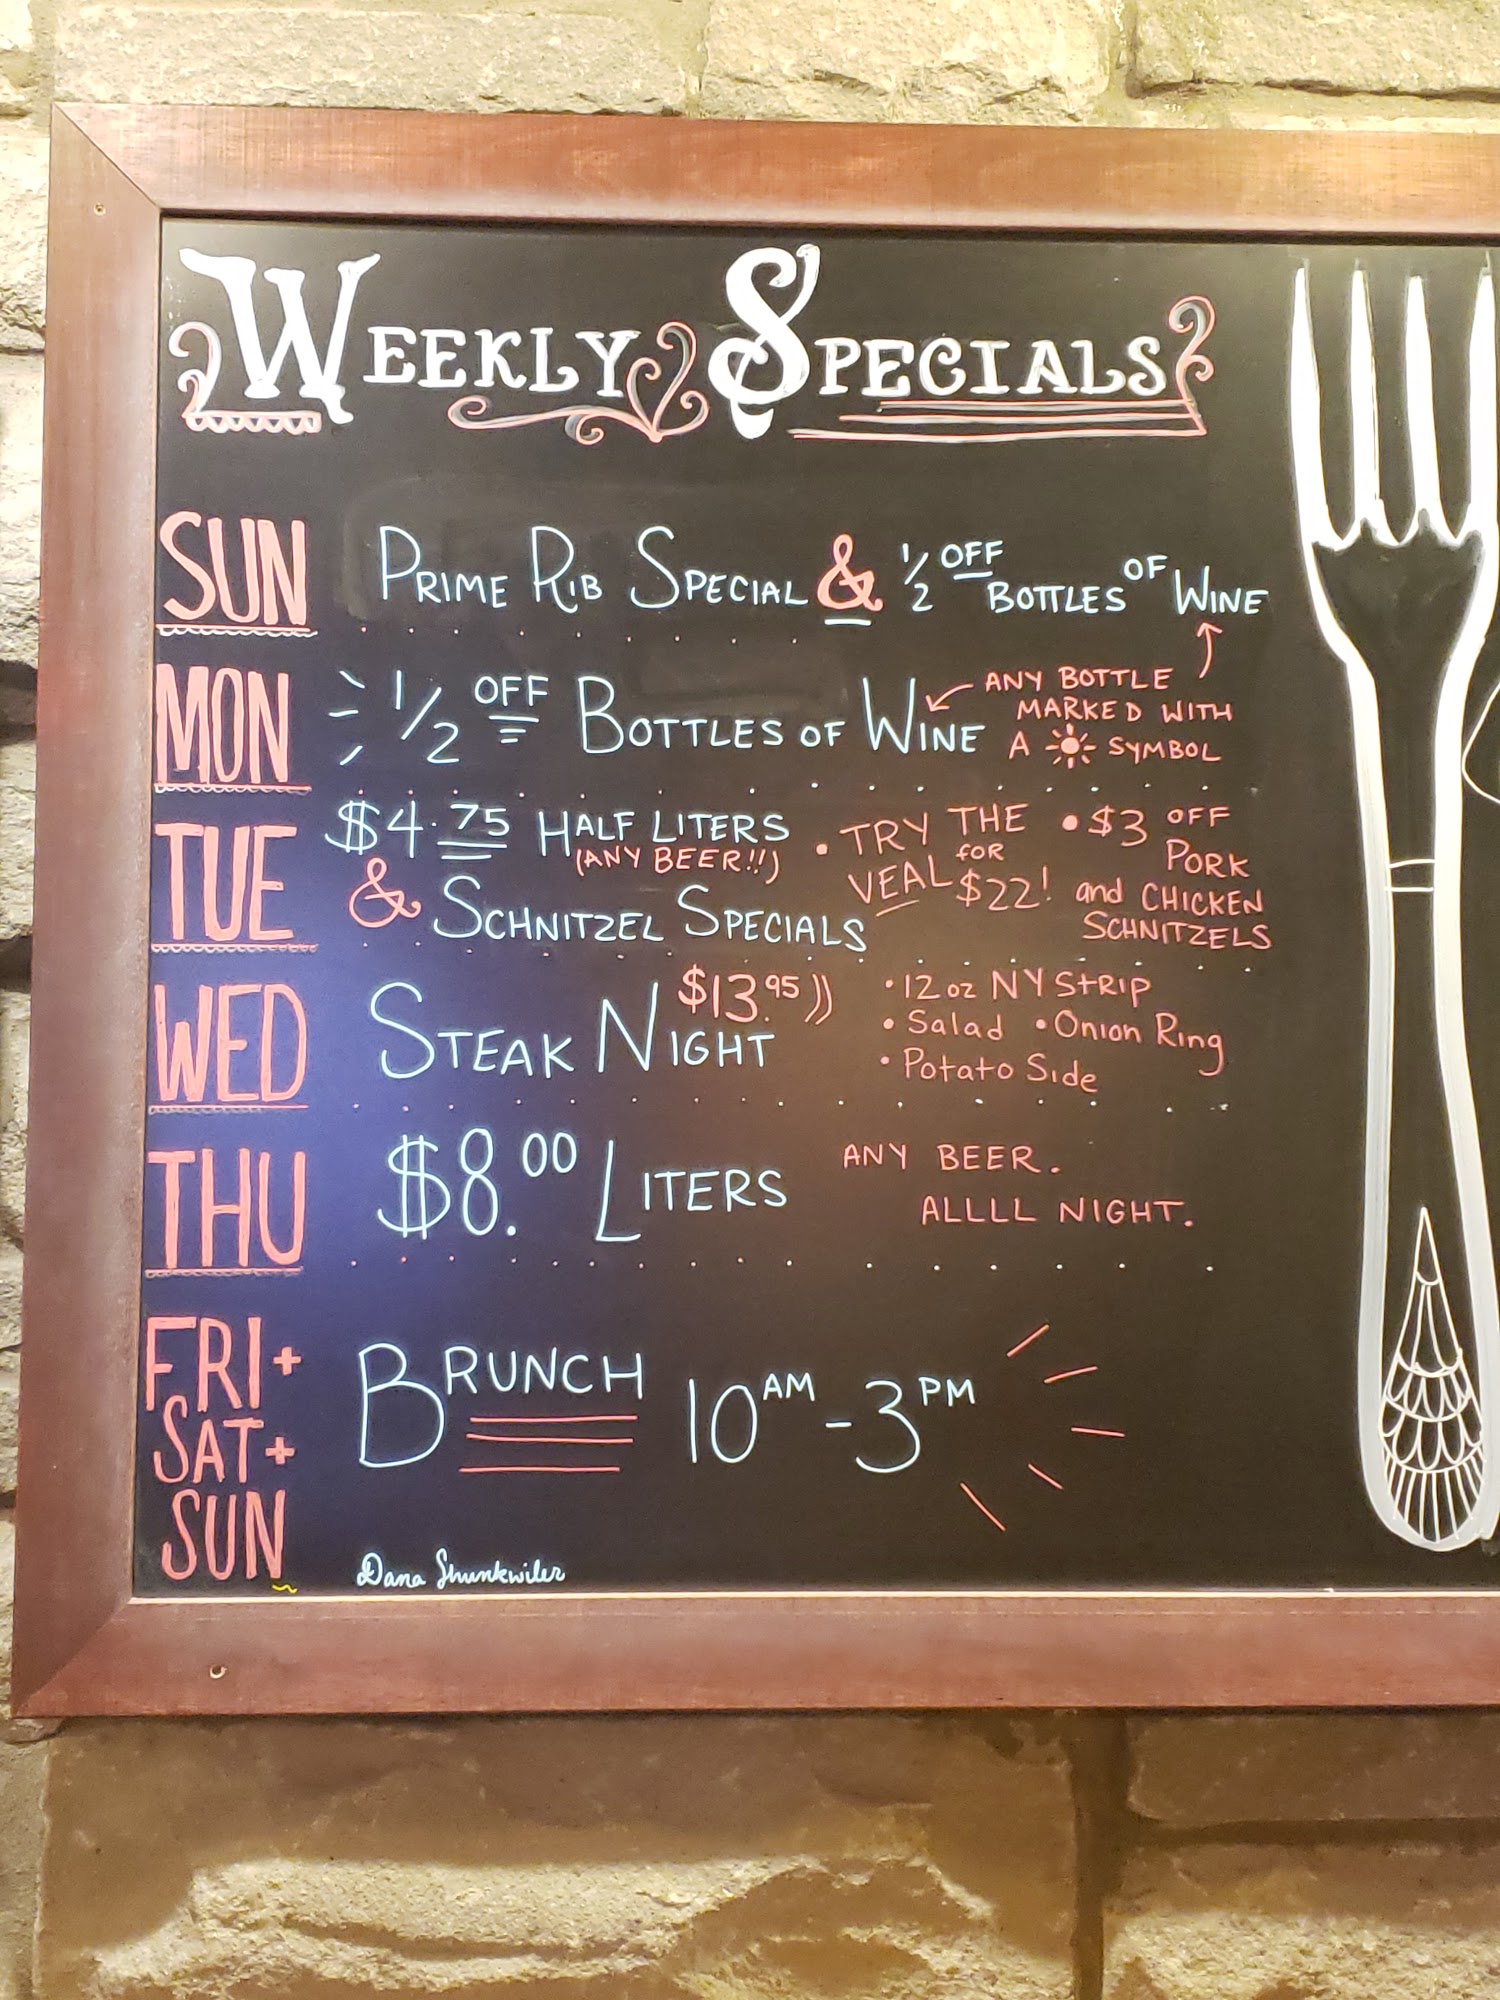 WEEKLY SPECIALS
SUN PRIME RIB SPECIAL & 1/2 OFF BOTTLES OF WINE
MON 1/2 OFF BOTTLES OF WINE
ANY BOTTLE
MARKED WITH
A SYMBOL
TUE $4.75 HALF LITERS
(ANY BEER!!)
& SCHNITZEL SPECIALS
• TRY THE
VEAL FOR
$22!
• $3 OFF
PORK
and CHICKEN
SCHNITZELS
WED STEAK NIGHT $13.95
• 12 oz NY StRIP
• Salad • Onion Ring
• Potato Side
THU $8.00 LITERS
ANY BEER.
ALLLL NIGHT.
FRI+
SAT+
SUN
BRUNCH 10AM-3PM
Dana Shunkwiler